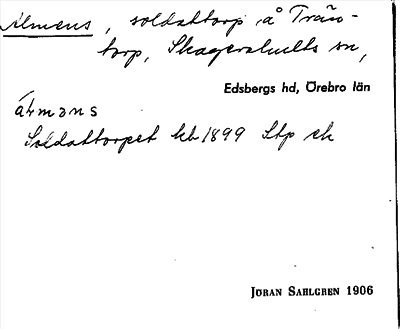 Älmens, soldattorp å Trän-
torp, Skagershults sn,
Edsbergs hd, Örebro län
ä̀lmɔns
Soldattorpet kb 1899 Stp ek
JÖRAN SAHLGREN 1906